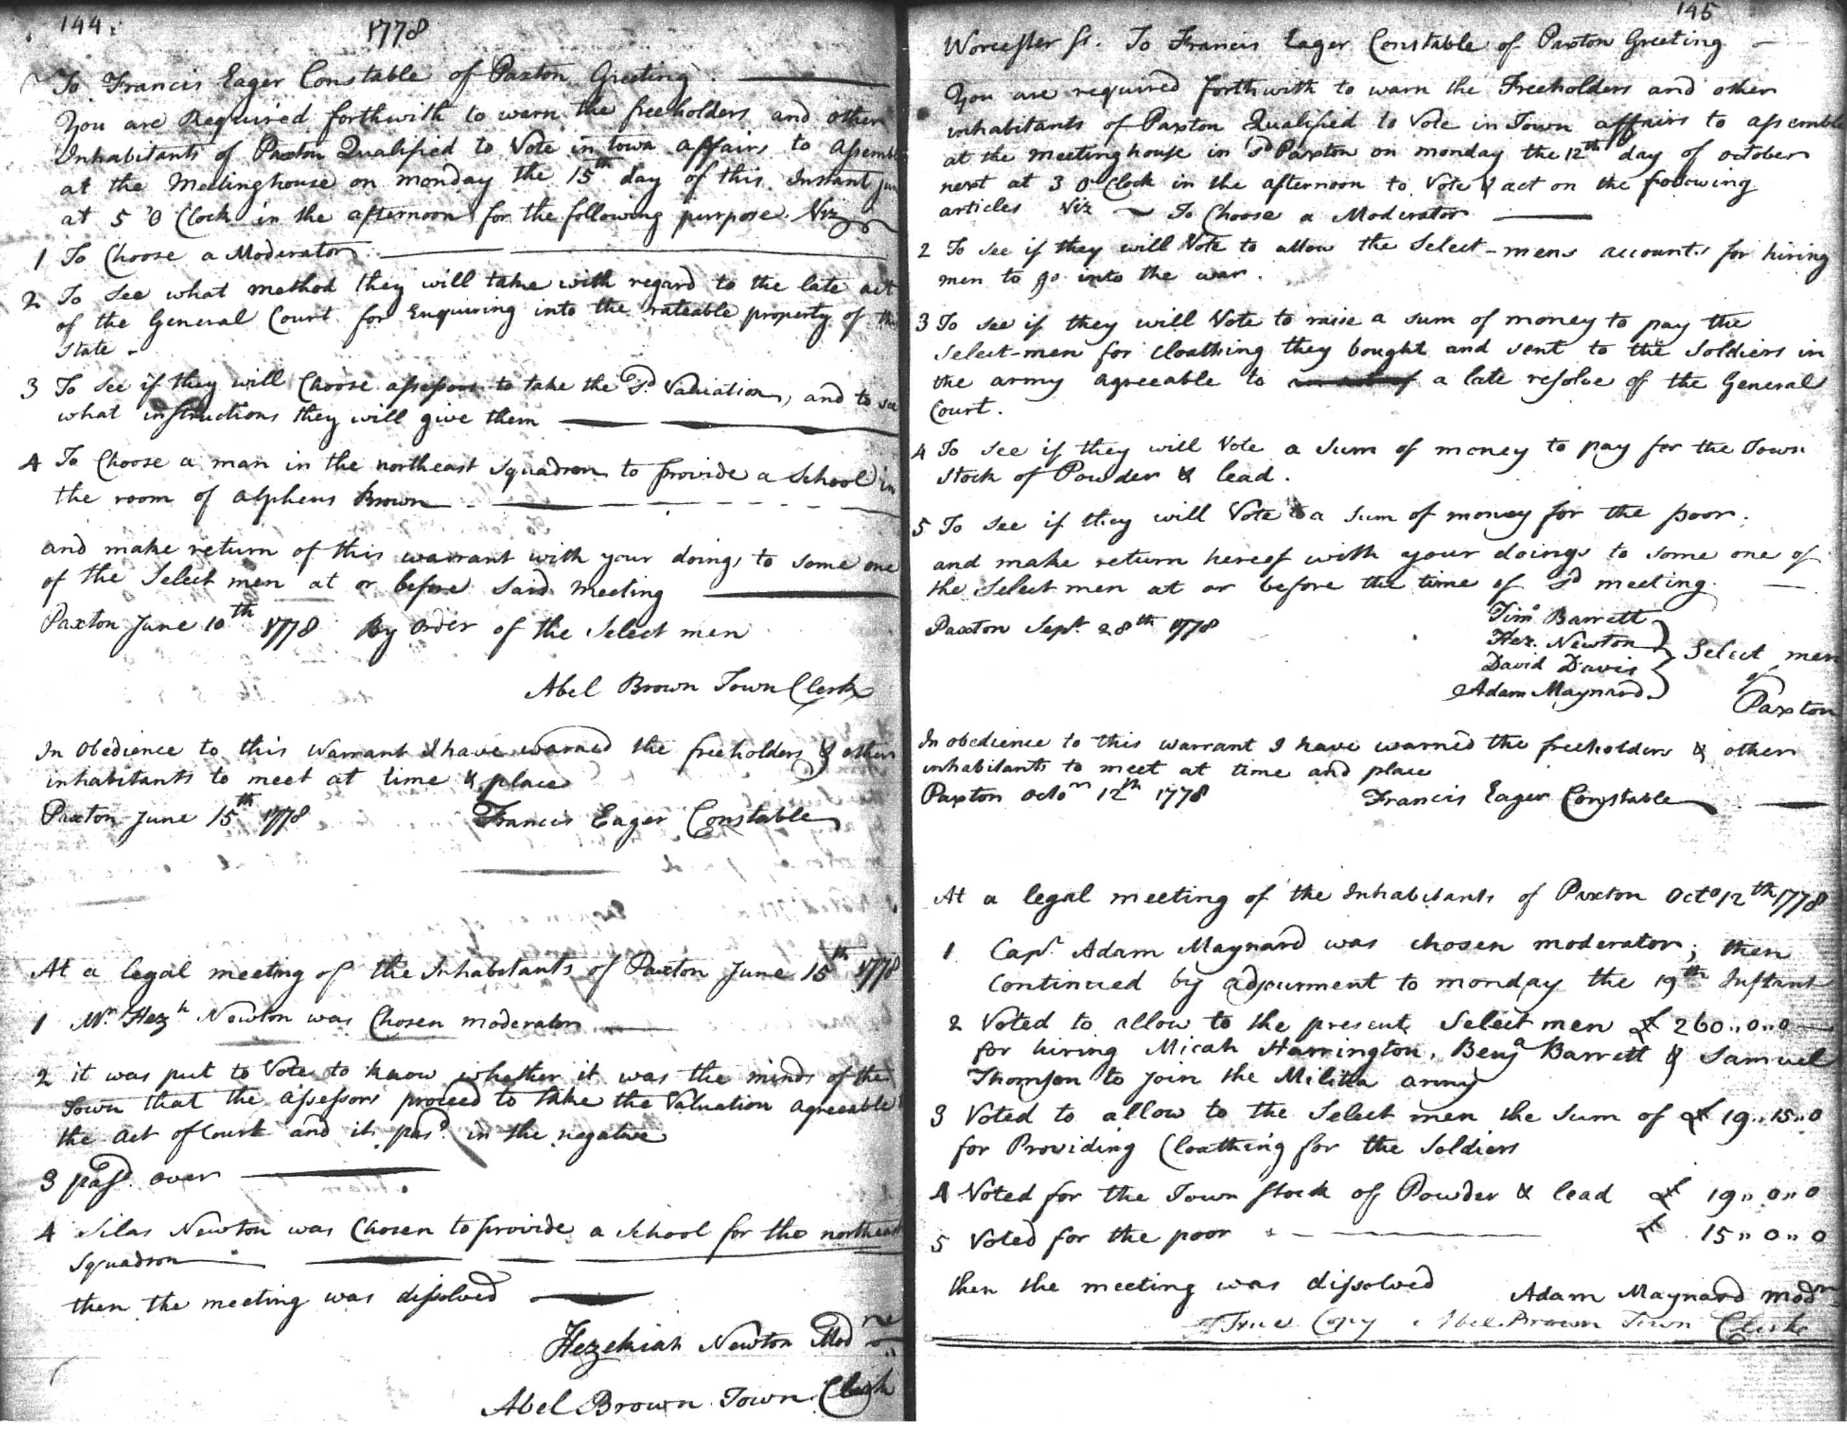 144.
1778
To Francis Eager Constable of Paxton Greeting.
You are Required forthwith to warn the freeholders and other
Inhabitants of Paxton Qualified to Vote in town affairs to assemble
at the Meetinghouse on monday the 15th day of this Instant June
at 5 'O Clock in the afternoon for the following purpose Viz
1 To Choose a Moderator
2 To see what method they will take with regard to the late act
of the General Court for Enquiring into the rateable property of the
State
3 To see if they will Choose assessors to take the sd Valuation, and to see
what instructions they will give them
4 To Choose a man in the northeast squadron to provide a School in
the room of alpheus Brown
and make return of this warrant with your doings to some one
of the Select men at or before said meeting
Paxton June 10th 1778 By order of the Select men
Abel Brown Town Clerk
In Obedience to this Warrant I have warned the freeholders & other
inhabitants to meet at time & place
Paxton June 15th 1778 Francis Eager Constable
At a legal meeting of the Inhabitants of Paxton June 15th 1778
1 Mr Hezh Newton was Chosen moderator
2 it was put to Vote to know whether it was the minds of the
Town that the assessors proceed to take the Valuation agreeable
the act of Court and it pasd in the negative
3 passd over
4 Silas Newton was Chosen to provide a School for the northeast
Squadron
then the meeting was dissolved
Hezekiah Newton Mod
Abel Brown Town Clerk
145
Worcester ss. To Francis Eager Constable of Paxton Greeting
You are required forthwith to warn the Freeholders and other
inhabitants of Paxton Qualified to Vote in Town affairs to assemble
at the meetinghouse in sd Paxton on monday the 12th day of october
next at 3 O Clock in the afternoon to Vote & act on the following
articles Viz To Choose a Moderator
2 To see if they will Vote to allow the Select-mens accounts for hiring
men to go into the war.
3 To see if they will Vote to raise a sum of money to pay the
Select-men for cloathing they bought and sent to the Soldiers in
the army agreeable to a late resolve of the General
Court.
4 To see if they will Vote a sum of money to pay for the Town
Stock of Powder & lead.
5 To see if they will Vote a sum of money for the poor;
and make return hereof with your doings to some one of
the Select men at or before the time of sd meeting.
Paxton Sept 28th 1778
Timo Barrett
Hez. Newton
David Davis
Adam Maynard
Select men
of
Paxton
In obedience to this warrant I have warned the freeholders & other
inhabitants to meet at time and place
Paxton Octor 12th 1778 Francis Eager Constable
At a legal meeting of the Inhabitants of Paxton Octo 12th 1778
1 Capt. Adam Maynard was chosen moderator; then
Continued by adjourment to monday the 19th Instant
2 Voted to allow to the present Select men £ 260,,0,,0
for hiring Micah Harrington, Benja Barrett & Samuel
Thomson to join the Militia army
3 Voted to allow to the Select men the Sum of £ 19,,15,,0
for Providing Cloathing for the Soldiers
4 Voted for the Town Stock of Powder & lead £ 19,,0,,0
5 Voted for the poor £ 15,,0,,0
then the meeting was dissolved
Adam Maynard modr
A True Copy Abel Brown Town Clerk